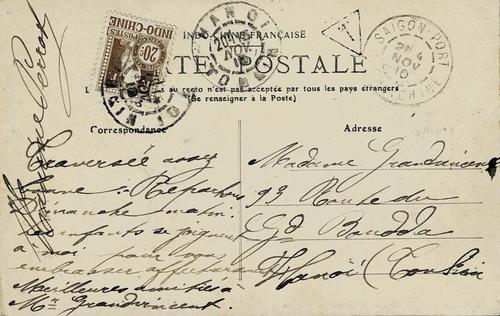 INDO-CHINE FRANÇAISE
CARTE POSTALE
au recto n'est pas acceptée par tous les pays étrangers
(Se renseigner à la Poste)
Correspondance
Adresse
Traversée assez
bonne. Repartons
Dimanche matin.
Les enfants se joignent
à moi pour vous
embrasser affectueusement
Meilleures amitiés à
Mr Grandvincent.
Madame Grandvincent
93 Route du
Gd Bouddha
Hanoï (Tonkin
POSTES
INDO-CHINE
20
HANOI
NOV
TONKIN
T
SAIGON-PORT
NOV
10